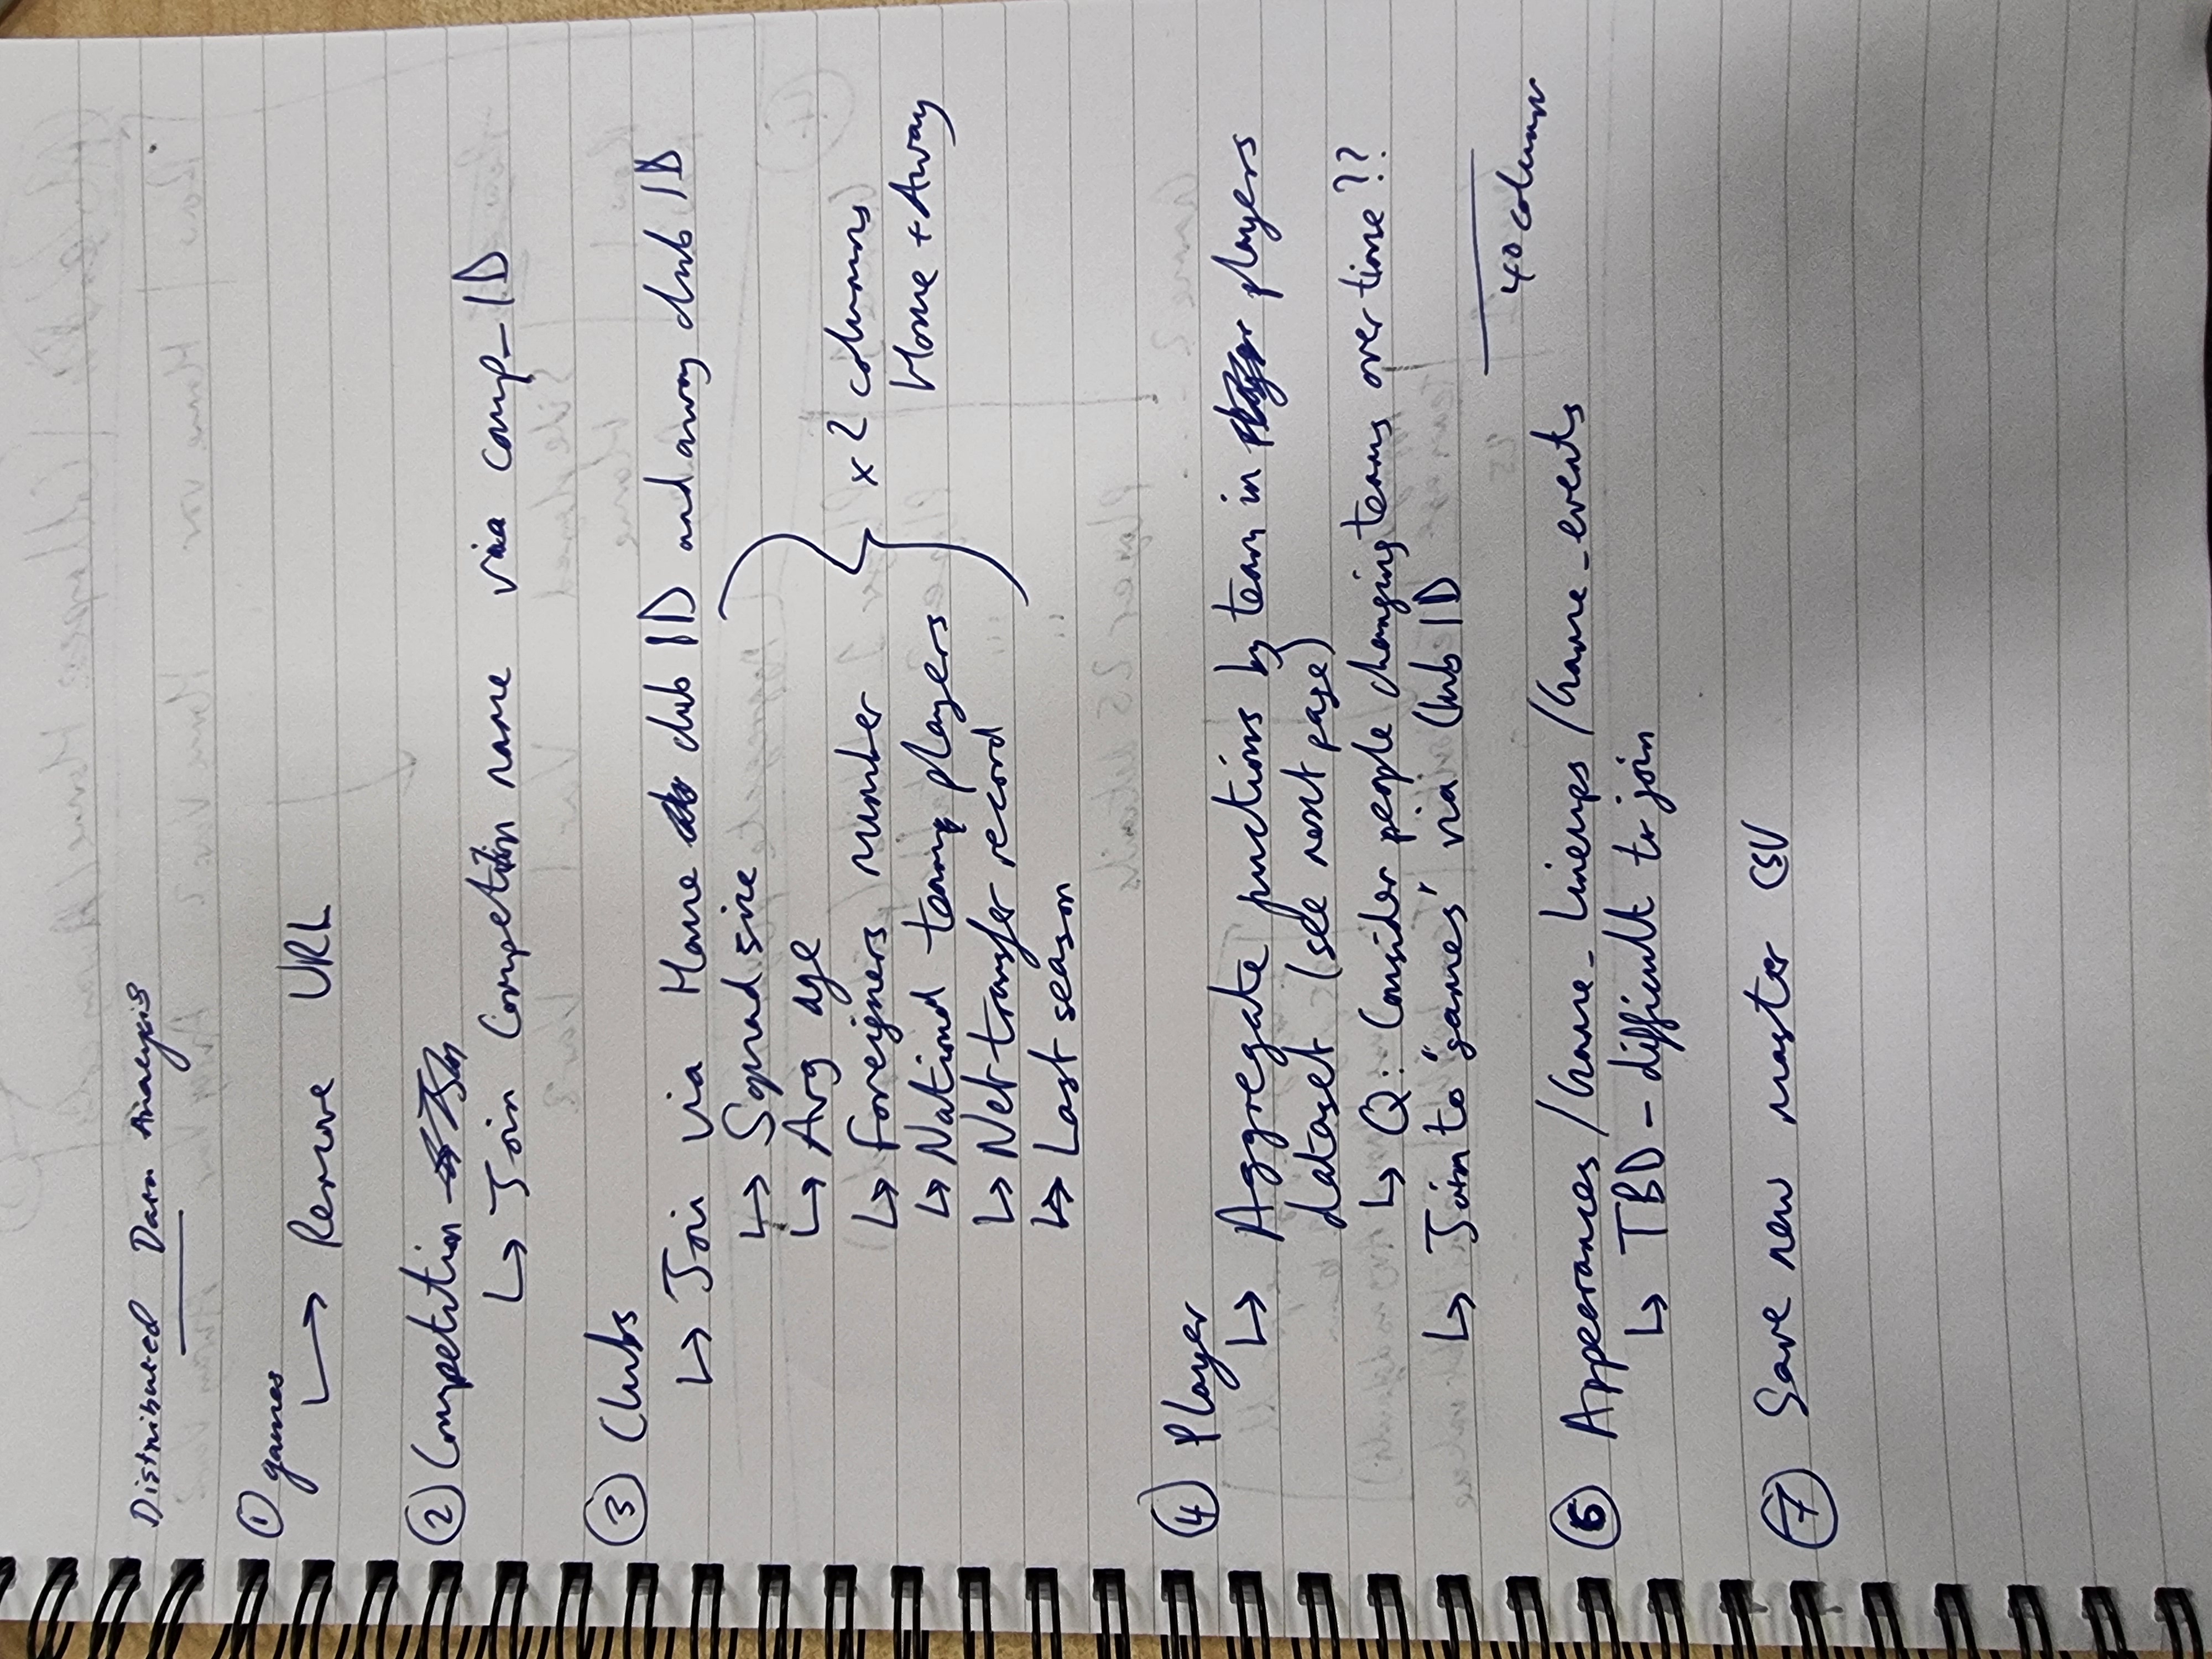 Distributed Data Analysis
① games
↳ Remove URL
② Competition
↳ Join Competition name via comp_ID
③ Clubs
↳ Join via Home club ID and away club ID
↳ Squad size
↳ Avg age
↳ Foreigners number
↳ National team players
↳ Net transfer record
↳ Last season
x 2 columns
Home + Away
④ Player
↳ Aggregate functions by team in players
dataset (see next page)
↳ Q: Consider people changing teams over time??
↳ Join to "games" via Club ID
40 columns
⑥ Appearances / Game_Lineups / Game_events
↳ TBD - difficult to join
⑦ Save new master CSV